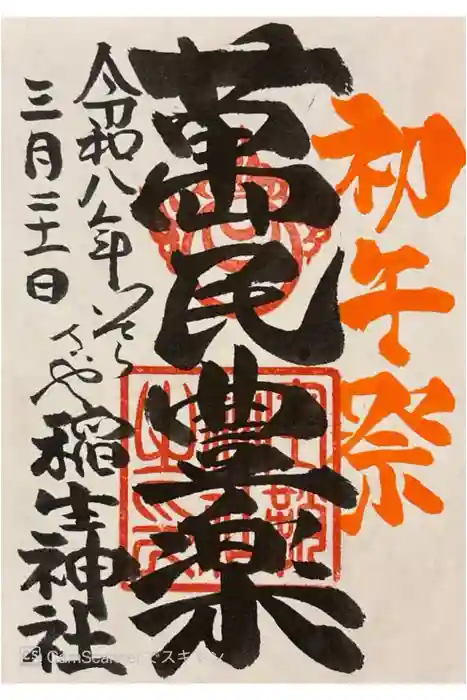 初午祭
萬民豊楽
令和八年
三月二十一日
稲生神社
CS CamScannerでスキャン